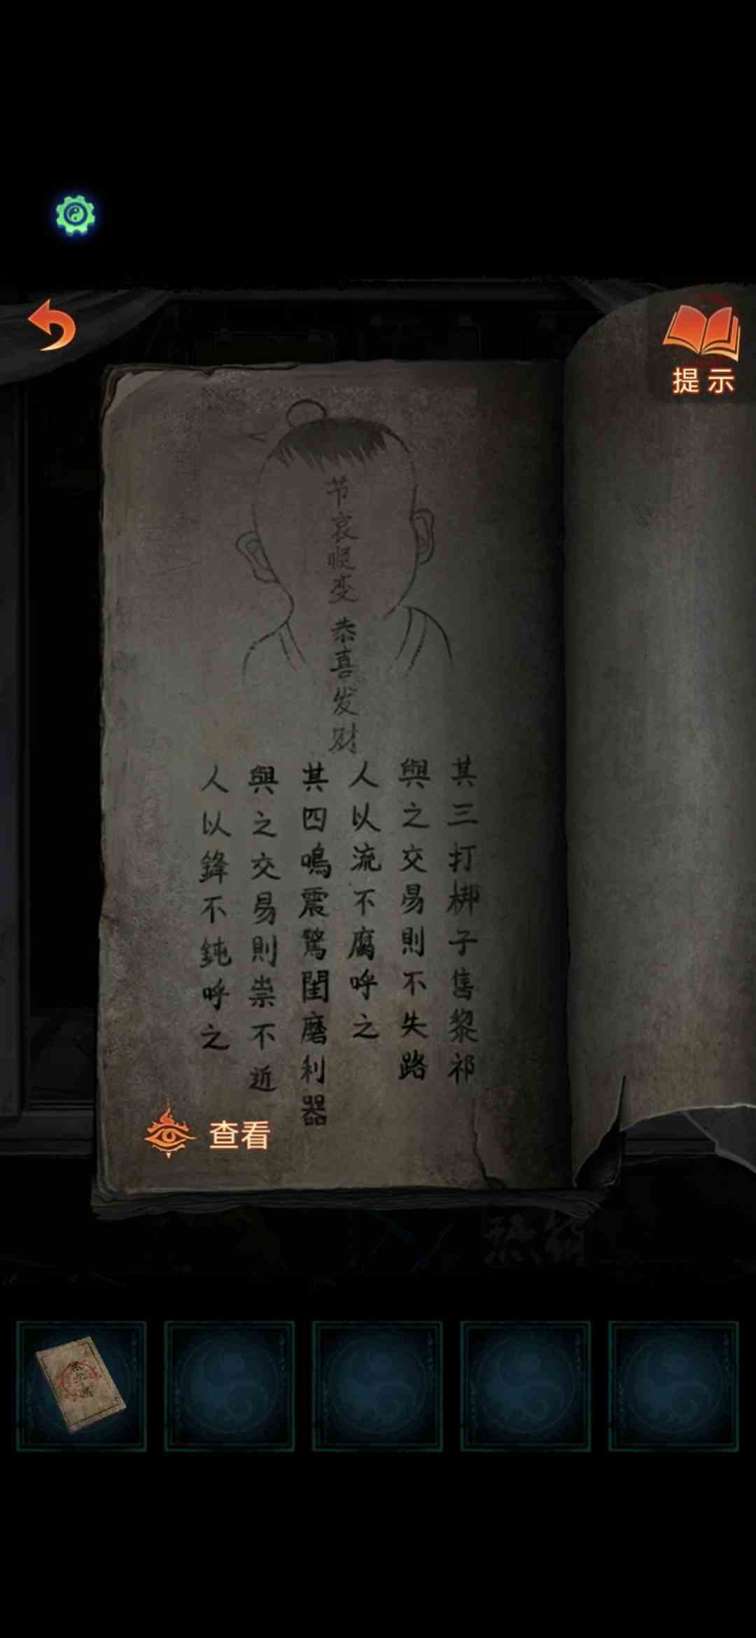 提示
节哀顺变
恭喜发财
其三打梆子售黎祁
與之交易則不失路
人以流不腐呼之
其四鳴震驚閨磨利器
與之交易則祟不近
人以鋒不鈍呼之
查看